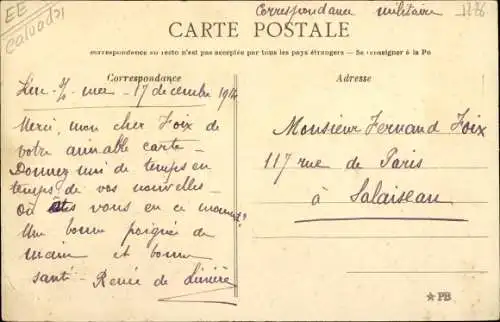 EE
Calvados
Correspondance militaire
CARTE POSTALE
La correspondance au recto n'est pas acceptée par tous les pays étrangers — Se renseigner à la Po
Correspondance
Adresse
s/ mer — 17 decembre 1914
Merci, mon cher Foix de
votre aimable carte —
Donnez moi de temps en
temps de vos nouvelles —
Où êtes vous en ce moment?
Une bonne poignée de
main et bonne
santé — Renée de
Monsieur Fernand Foix
117 rue de Paris
à Palaiseau
PB